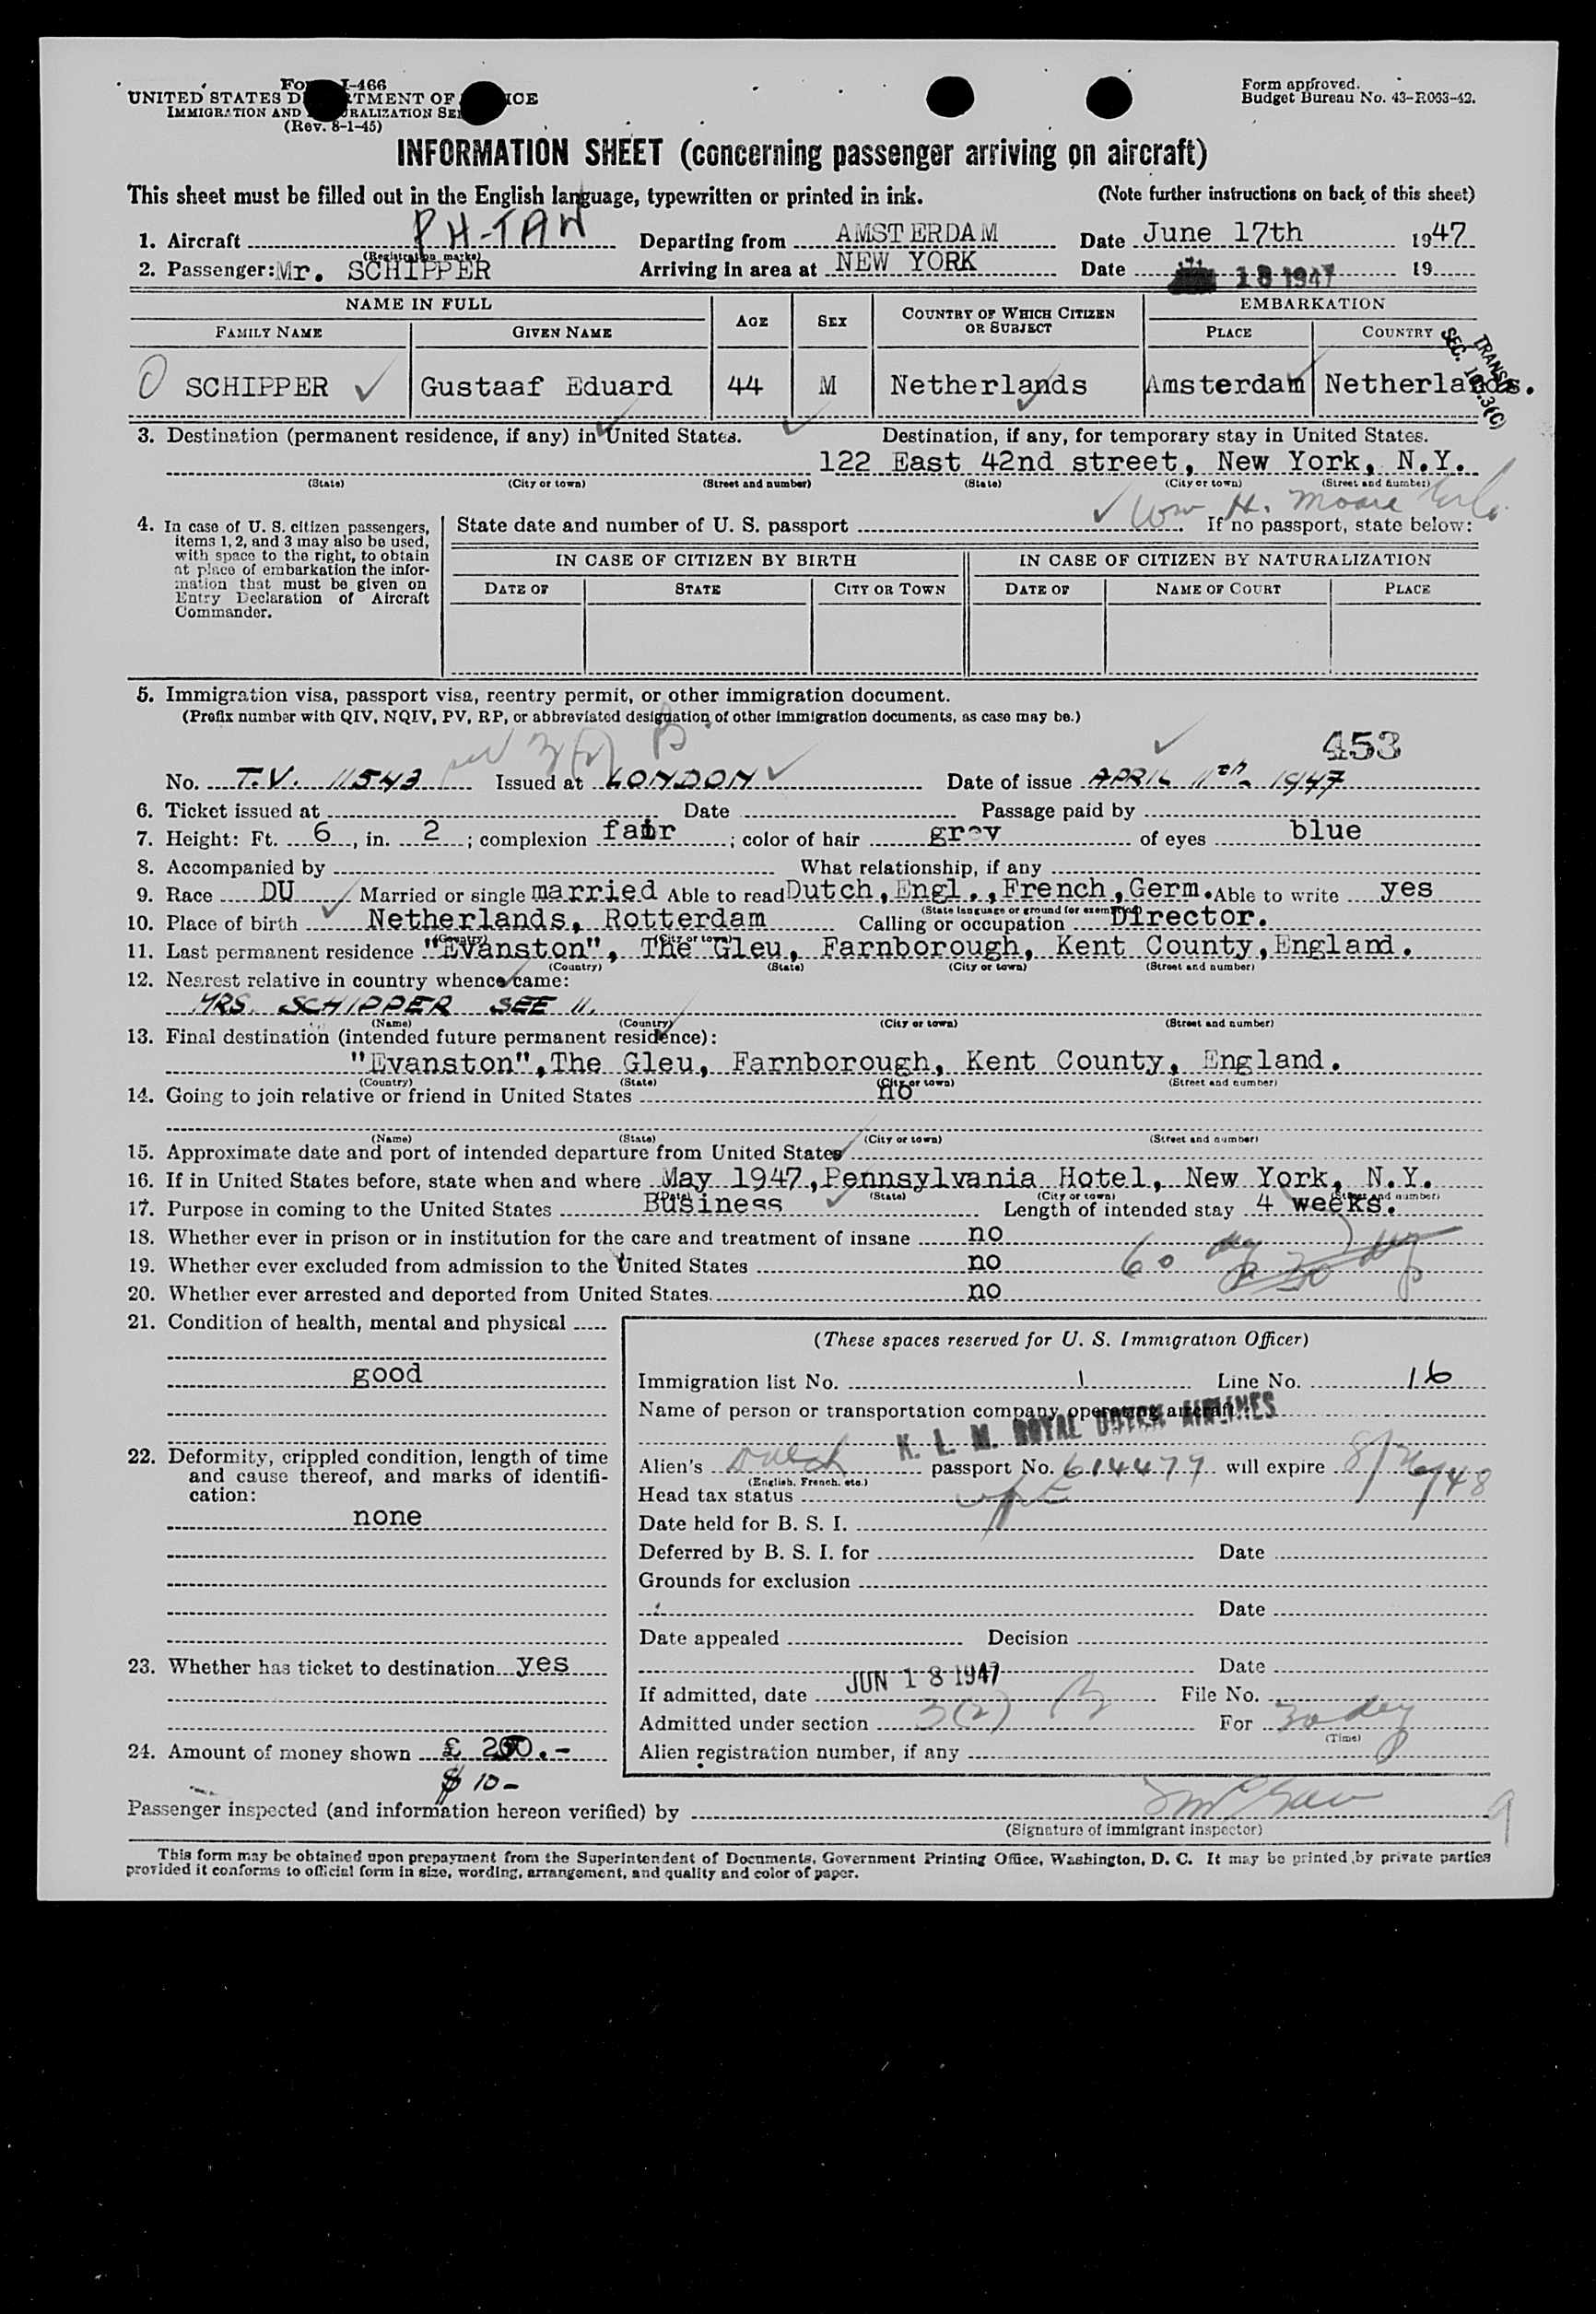 Form I-466
UNITED STATES DEPARTMENT OF JUSTICE
IMMIGRATION AND NATURALIZATION SERVICE
(Rev. 8-1-45)
Form approved.
Budget Bureau No. 43-R063-42.
INFORMATION SHEET (concerning passenger arriving on aircraft)
This sheet must be filled out in the English language, typewritten or printed in ink. (Note further instructions on back of this sheet)
1. Aircraft PH-TAW Departing from AMSTERDAM Date June 17th 1947
(Registration marks)
2. Passenger: Mr. SCHIPPER Arriving in area at NEW YORK Date 18 1947 19
NAME IN FULL AGE SEX COUNTRY OF WHICH CITIZEN OR SUBJECT EMBARKATION
FAMILY NAME GIVEN NAME PLACE COUNTRY
TRANSIT
SEC.
SCHIPPER Gustaaf Eduard 44 M Netherlands Amsterdam Netherlands.
3. Destination (permanent residence, if any) in United States. Destination, if any, for temporary stay in United States.
122 East 42nd street, New York, N.Y.
(State) (City or town) (Street and number) (State) (City or town) (Street and number)
H. Moore
4. In case of U. S. citizen passengers, items 1, 2, and 3 may also be used, with space to the right, to obtain at place of embarkation the information that must be given on Entry Declaration of Aircraft Commander.
State date and number of U. S. passport If no passport, state below:
IN CASE OF CITIZEN BY BIRTH IN CASE OF CITIZEN BY NATURALIZATION
DATE OF STATE CITY OR TOWN DATE OF NAME OF COURT PLACE
5. Immigration visa, passport visa, reentry permit, or other immigration document.
(Prefix number with QIV, NQIV, PV, RP, or abbreviated designation of other immigration documents, as case may be.)
453
No. T.V. 11543 Issued at LONDON Date of issue APRIL 11th 1947
6. Ticket issued at Date Passage paid by
7. Height: Ft. 6, in. 2; complexion fair; color of hair grey of eyes blue
8. Accompanied by What relationship, if any
9. Race DU Married or single married Able to read Dutch, Engl., French, Germ. Able to write yes
(State language or ground for exemption)
10. Place of birth Netherlands, Rotterdam Calling or occupation Director.
(Country) (City or town)
11. Last permanent residence "Evanston", The Gleu, Farnborough, Kent County, England.
(Country) (State) (City or town) (Street and number)
12. Nearest relative in country whence came:
MRS. SCHIPPER SEE 11.
(Name) (Country) (City or town) (Street and number)
13. Final destination (intended future permanent residence):
"Evanston", The Gleu, Farnborough, Kent County, England.
(Country) (State) (City or town) (Street and number)
14. Going to join relative or friend in United States no
(Name) (State) (City or town) (Street and number)
15. Approximate date and port of intended departure from United States
16. If in United States before, state when and where May 1947, Pennsylvania Hotel, New York, N.Y.
(Date) (State) (City or town) (Street and number)
17. Purpose in coming to the United States Business Length of intended stay 4 weeks.
18. Whether ever in prison or in institution for the care and treatment of insane no
19. Whether ever excluded from admission to the United States no
60 30 day
20. Whether ever arrested and deported from United States no
21. Condition of health, mental and physical
good
22. Deformity, crippled condition, length of time and cause thereof, and marks of identification:
none
23. Whether has ticket to destination yes
24. Amount of money shown £ 200.-
$ 10-
(These spaces reserved for U. S. Immigration Officer)
Immigration list No. 1 Line No. 16
Name of person or transportation company operating aircraft
K. L. M. ROYAL DUTCH AIRLINES
Alien's Dutch passport No. 614479 will expire 8/26/48
(English, French, etc.)
Head tax status
Date held for B. S. I.
Deferred by B. S. I. for Date
Grounds for exclusion
Date
Date appealed Decision
Date
If admitted, date JUN 18 1947 File No.
Admitted under section 3(2) B For 30 day
(Time)
Alien registration number, if any
Passenger inspected (and information hereon verified) by
(Signature of immigrant inspector)
This form may be obtained upon prepayment from the Superintendent of Documents, Government Printing Office, Washington, D. C. It may be printed by private parties
provided it conforms to official form in size, wording, arrangement, and quality and color of paper.